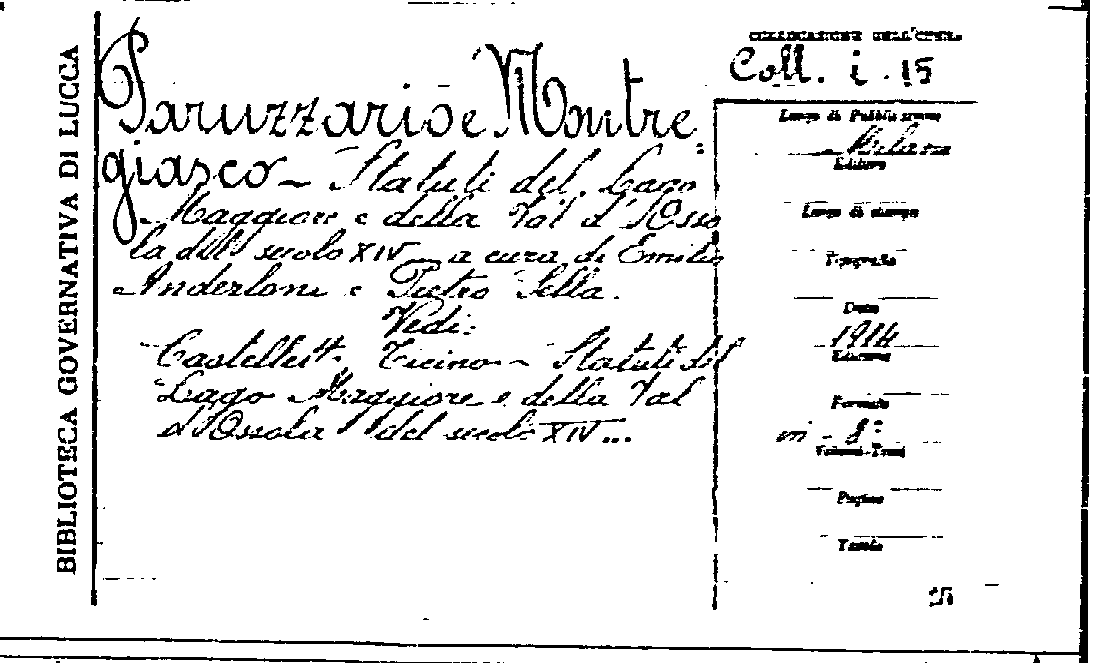 BIBLIOTECA GOVERNATIVA DI LUCCA
Paruzzario e Montre
giasco - Statuti del Lago
Maggiore e della Val d'Osso
la del secolo XIV - a cura di Emilio
Anderloni e Pietro Sella.
Vedi:
Castelletto Ticino - Statuti del
Lago Maggiore e della Val
d'Ossola del secolo XIV...
COLLOCAZIONE DELL'OPERA
Coll. i. 15
Luogo di Pubblicazione
Milano
Editore
Luogo di stampa
Tipografia
Data
1914
Edizione
Formato
in - 8°
Volumi-Tomi
Pagine
Tavole